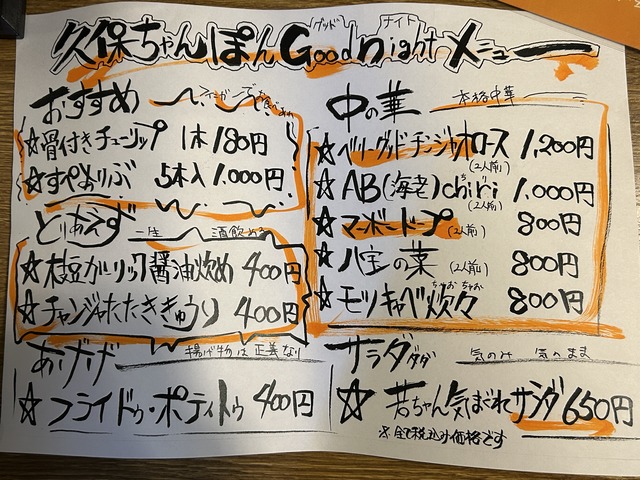 久保ちゃんぽん Good night メニュー
グッド ナイト
おすすめ
☆骨付きチューリップ 1本 180円
☆すぺありぶ 5本入 1.000円
とりあえず 一生 酒飲める
☆枝豆ガーリック醤油炒め 400円
☆チャンジャたたききゅうり 400円
あげげ 揚げ物は正義なり
☆フライドゥ・ポティトゥ 400円
中の華 本格中華
☆ベリーグッドチンジャオロース (2人前) 1,200円
☆AB(海老)chiri (2人前) 1,000円
☆マーボードープ (2人前) 800円
☆八宝の菜 (2人前) 800円
☆モツキャベ炊々 ちゃおちゃお 800円
サラダダダ 気のみ 気へまま
☆若ちゃん気まぐれサンダ 650円
※全て税込み価格です